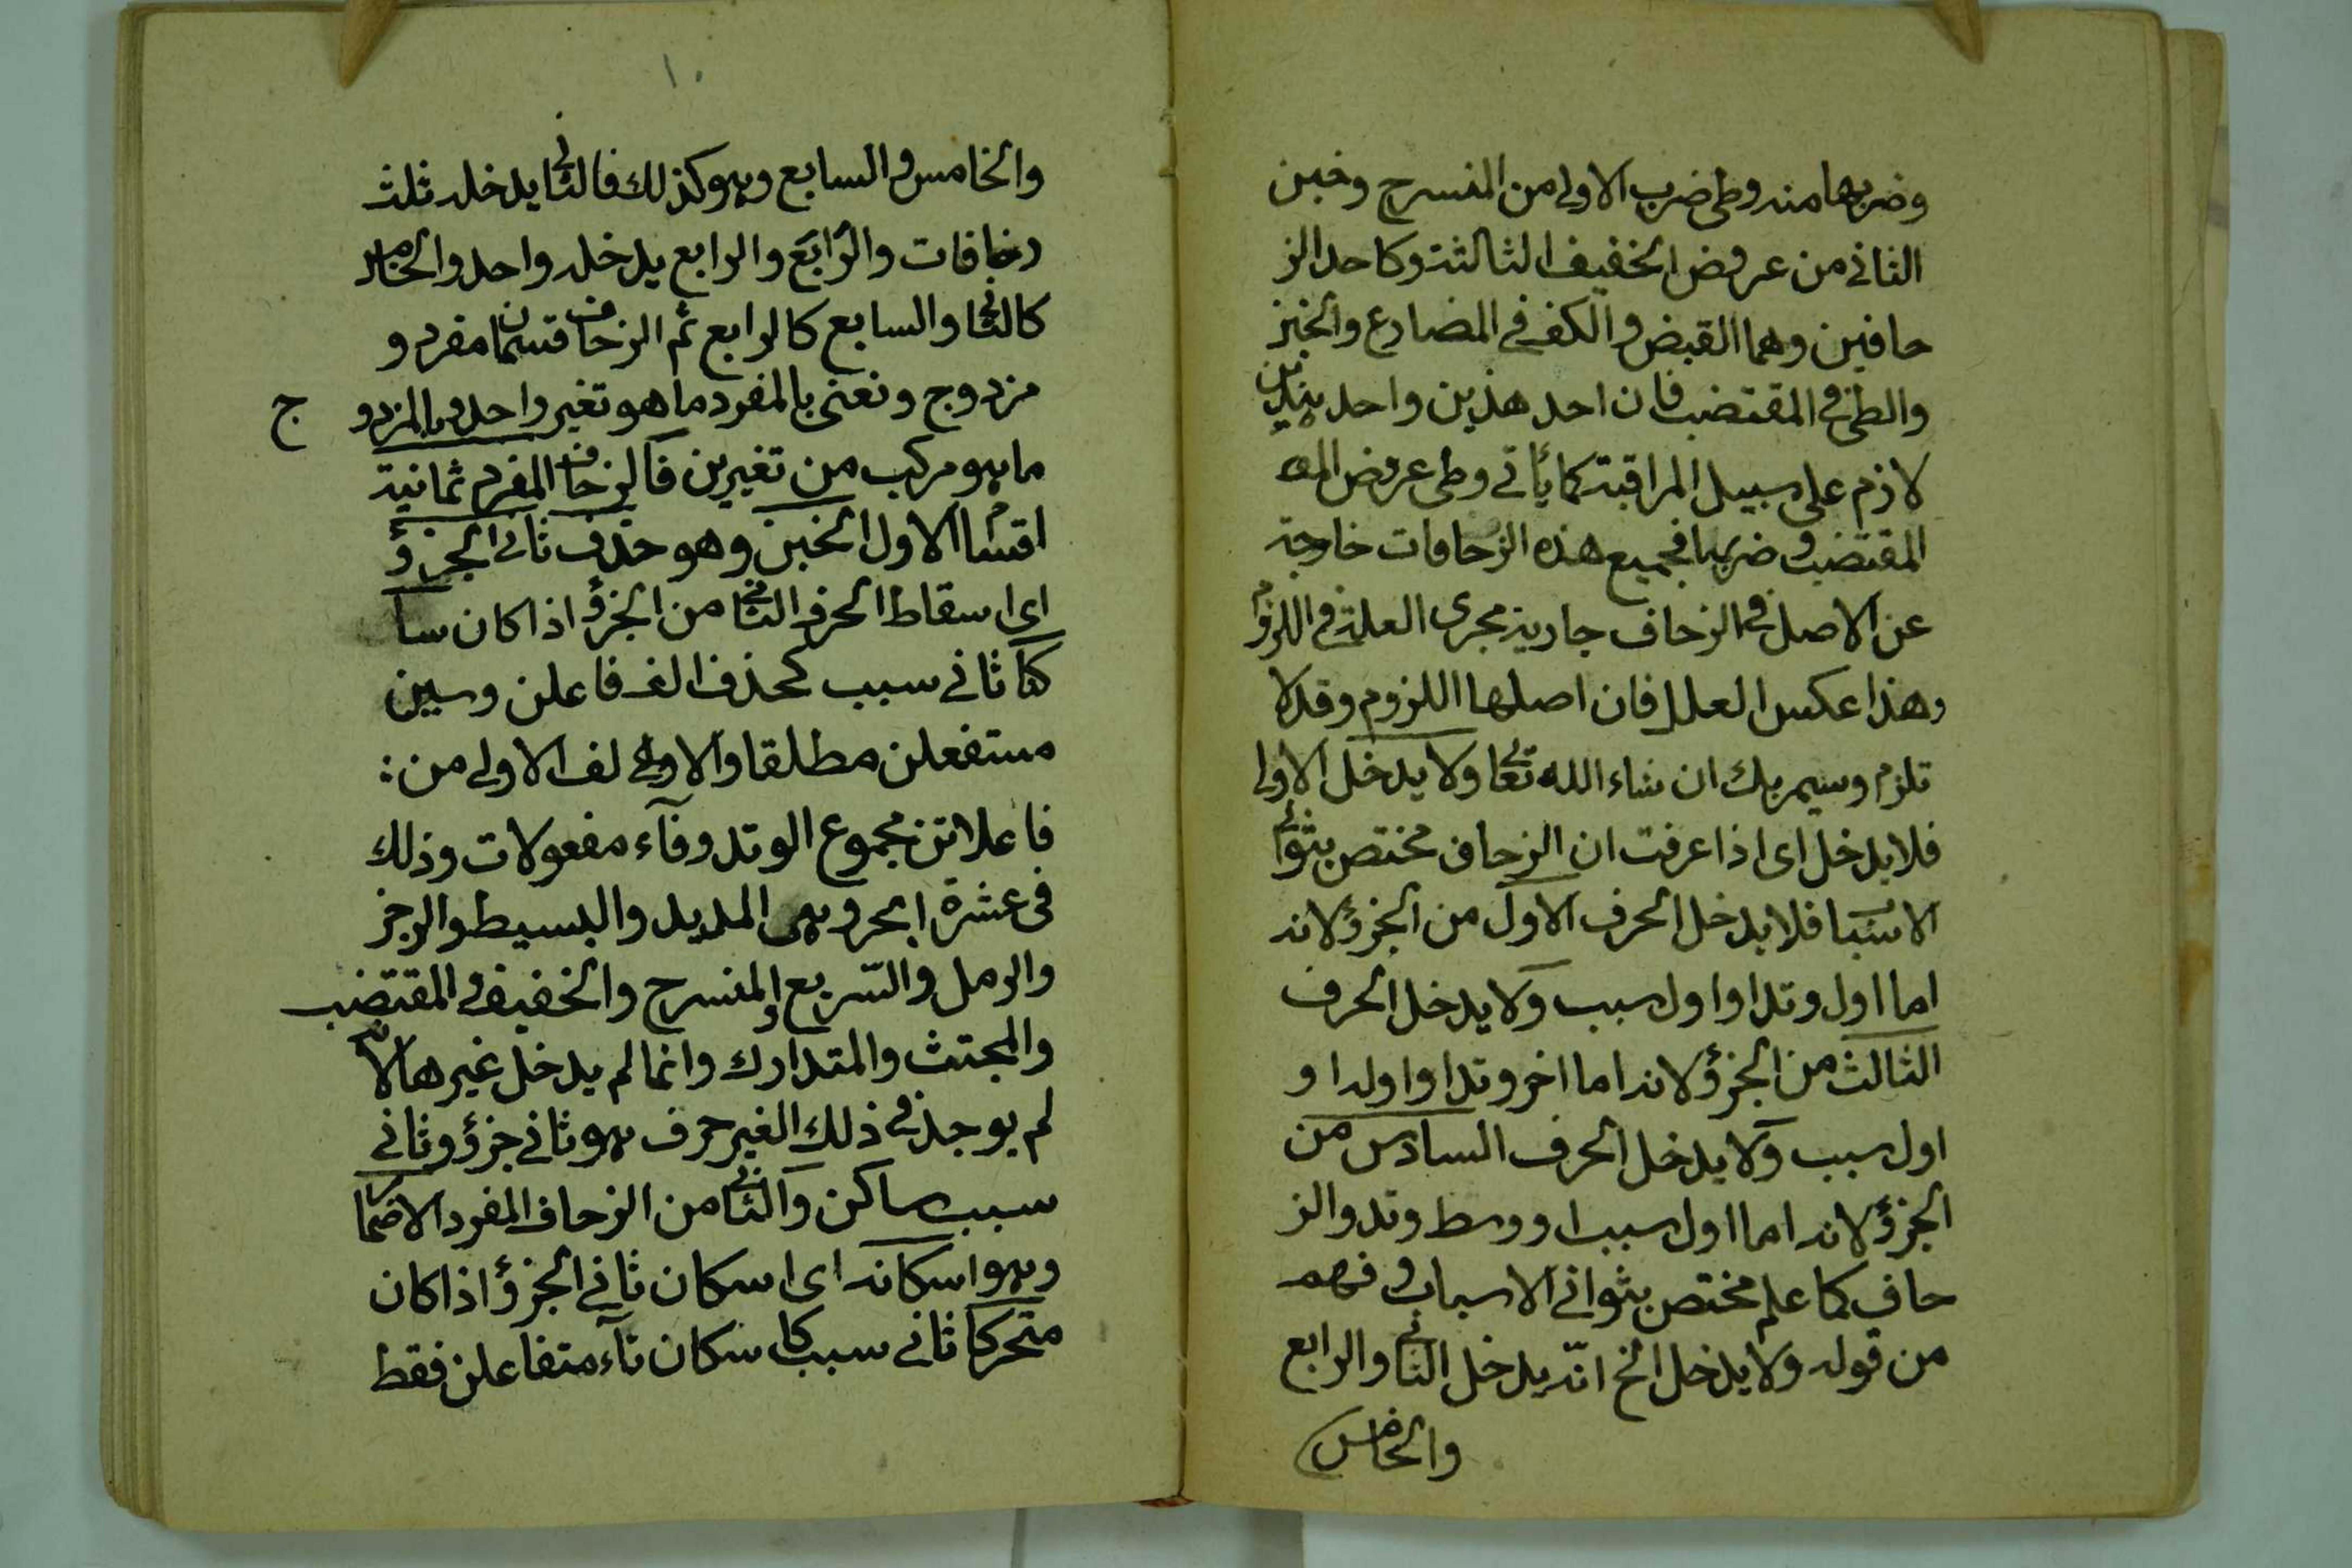 وضربها منه وطى ضرب الاولى من المنسرح وخبن
الثانى من عروض الخفيف الثالثة وكاحد الز
حافين وهما القبض والكف فى المضارع والخبن
والطى فى المقتضب فان احد هذين واحد ذينك
لازم على سبيل المراقبة كما يأتى وطى عروض
المقتضب وضربها فجميع هذه الزحافات خارجة
عن الاصل فى الزحاف جارية مجرى العلة فى اللزوم
وهذا عكس العلل فان اصلها اللزوم وقد لا
تلزم وسيمر بك ان شاء الله تعالى ولا يدخل الاول
فلا يدخل اى اذا عرفت ان الزحاف مختص بثوانى
الاسباب فلا يدخل الحرف الاول من الجزؤ لانه
اما اول وتد او اول سبب ولا يدخل الحرف
الثالث من الجزؤ لانه اما اخر وتد او اوله او
اول سبب ولا يدخل الحرف السادس من
الجزؤ لانه اما اول سبب او وسط وتد والز
حاف كما علم مختص بثوانى الاسباب وفهم
من قوله ولا يدخل الخ انّه يدخل الثانى والرابع
والخامس
١٠
والخامس والسابع وهو كذلك فالثانى يدخله ثلث
زحافات والرابع والرابع يدخله واحد والخامس
كالثانى والسابع كالرابع ثم الزحاف قسمان مفرد و
مزدوج ونعنى بالمفرد ما هو تغير واحد وبالمزدو ج
ما هو مركب من تغيرين فالزحاف المفرد ثمانية
اقسام الاول الخبن وهو حذف ثانى الجزؤ
اى اسقاط الحرف الثانى من الجزؤ اذا كان سا
كنا ثانى سبب كحذف الف فاعلن وسين
مستفعلن مطلقا والالف الاولى من :
فاعلاتن مجموع الوتد وفآء مفعولات وذلك
فى عشرة ابحر وهى المديد والبسيط والرجز
والرمل والسّريع والمنسرح والخفيف والمقتضب
والمجتث والمتدارك وانما لم يدخل غيرها لانه
لم يوجد فى ذلك الغير حرف هو ثانى جزؤ وثانى
سبب ساكن والثانى من الزحاف المفرد الاضمار
وهو اسكانه اى اسكان ثانى الجزؤ اذا كان
متحركا ثانى سبب كاسكان تآء متفاعلن فقط